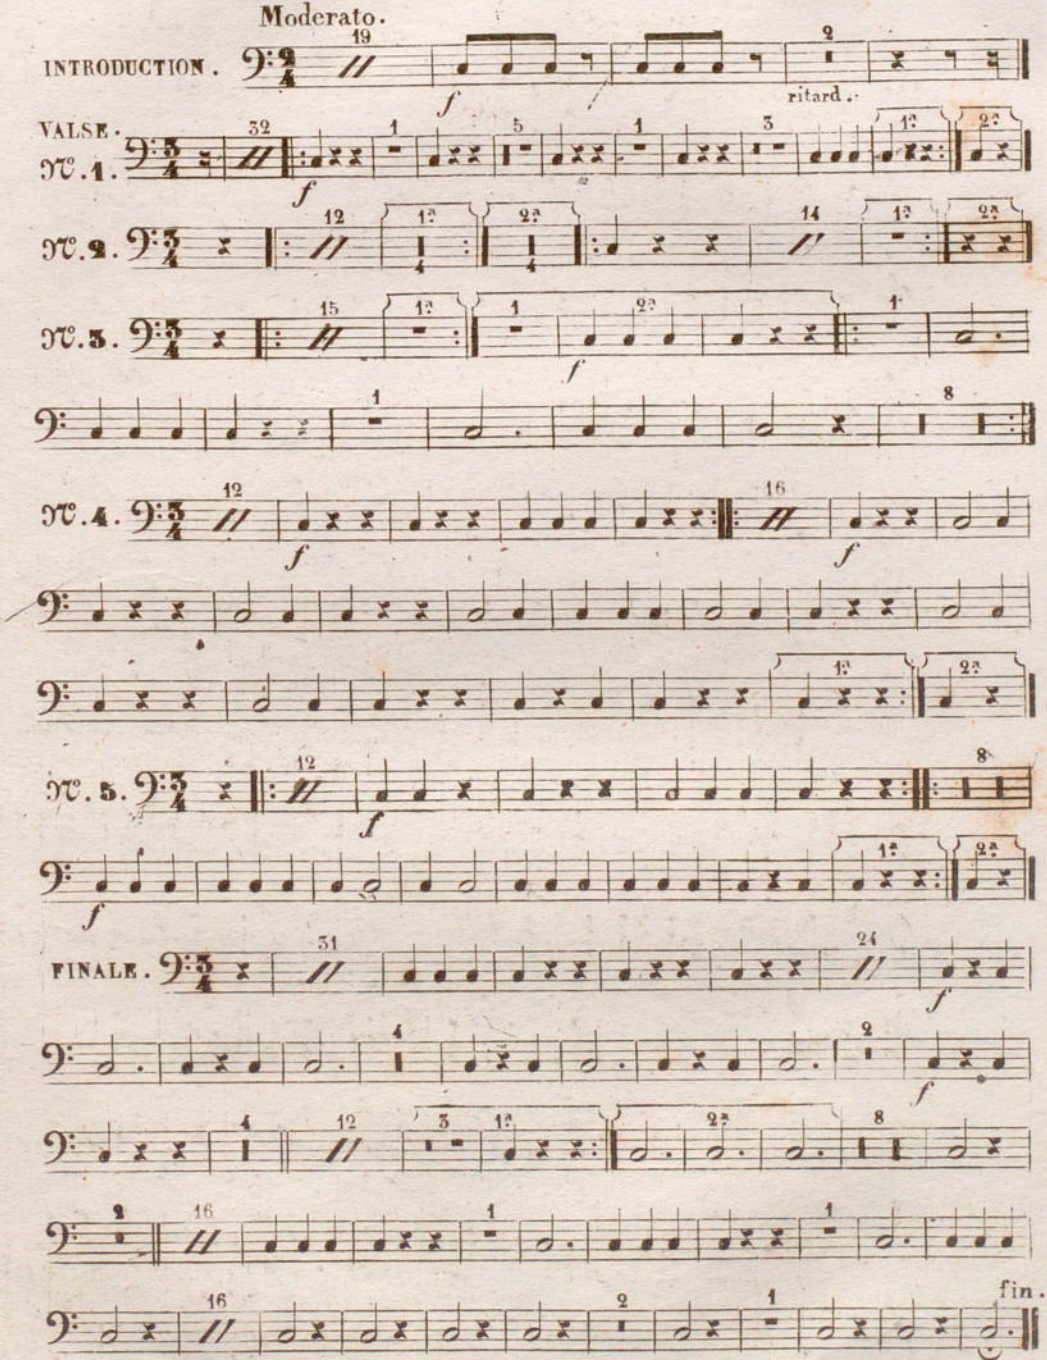 Moderato.
INTRODUCTION. 2 4 19 f 2 ritard.
VALSE.
N.1. 3 4 32 f 1 5 1 3 1ª 2ª
N.2. 3 4 12 1ª 4 2ª 4 14 1ª 2ª
N.3. 3 4 15 1ª 1 f 2ª 1
1 8
N.4. 3 4 12 f 16 f
1ª 2ª
N.5. 3 4 12 f 8
f 1ª 2ª
FINALE. 3 4 31 24 f
4 2 f
4 12 3 1ª 2ª 8
2 16 1 1
16 2 1 fin.